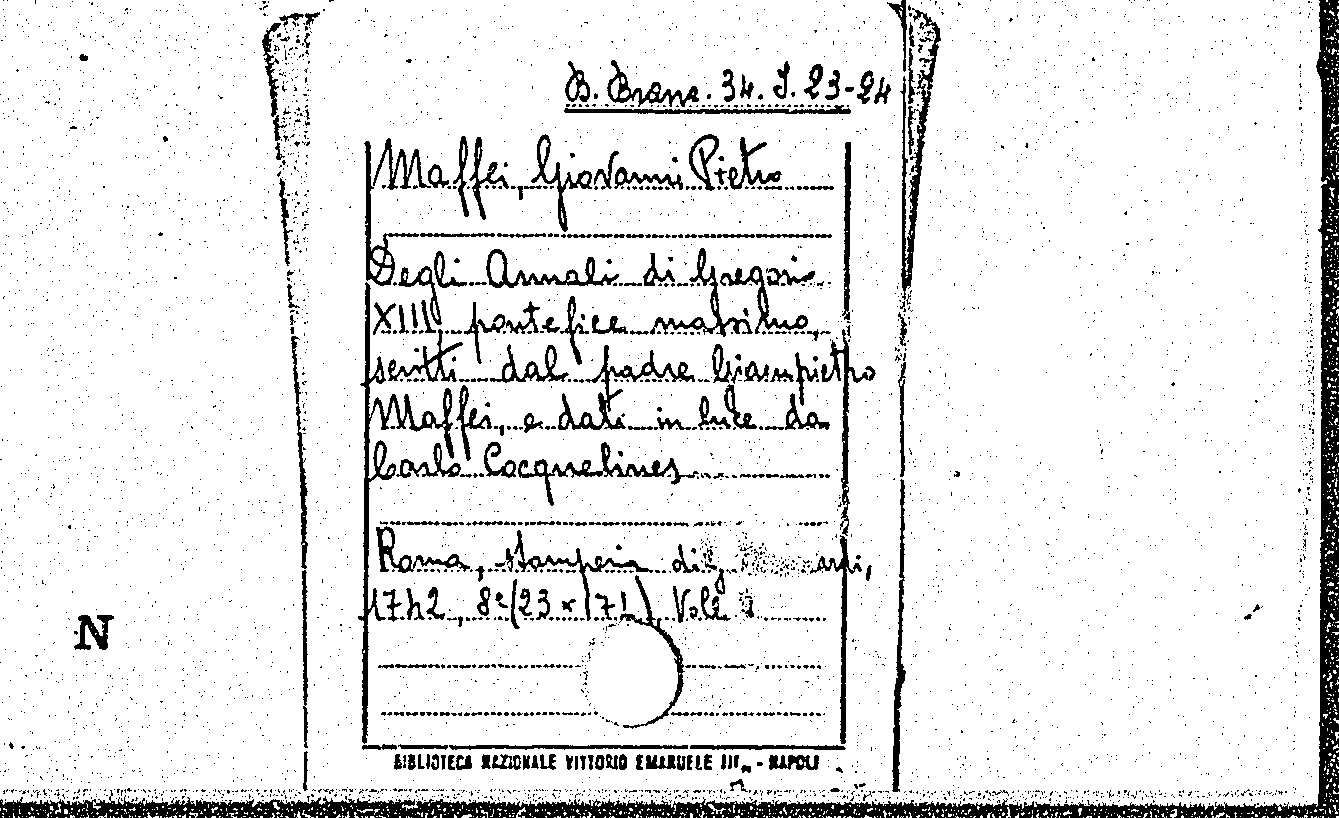 B. Branc. 34. I. 23-24
Maffei, Giovanni Pietro
Degli Annali di Gregorio
XIII pontefice massimo,
scritti dal padre Giampietro
Maffei, e dati in luce da
Carlo Cocquelines
Roma, stamperia di
1742, 8º (23 x 171), Vol.
N
BIBLIOTECA NAZIONALE VITTORIO EMANUELE III - NAPOLI